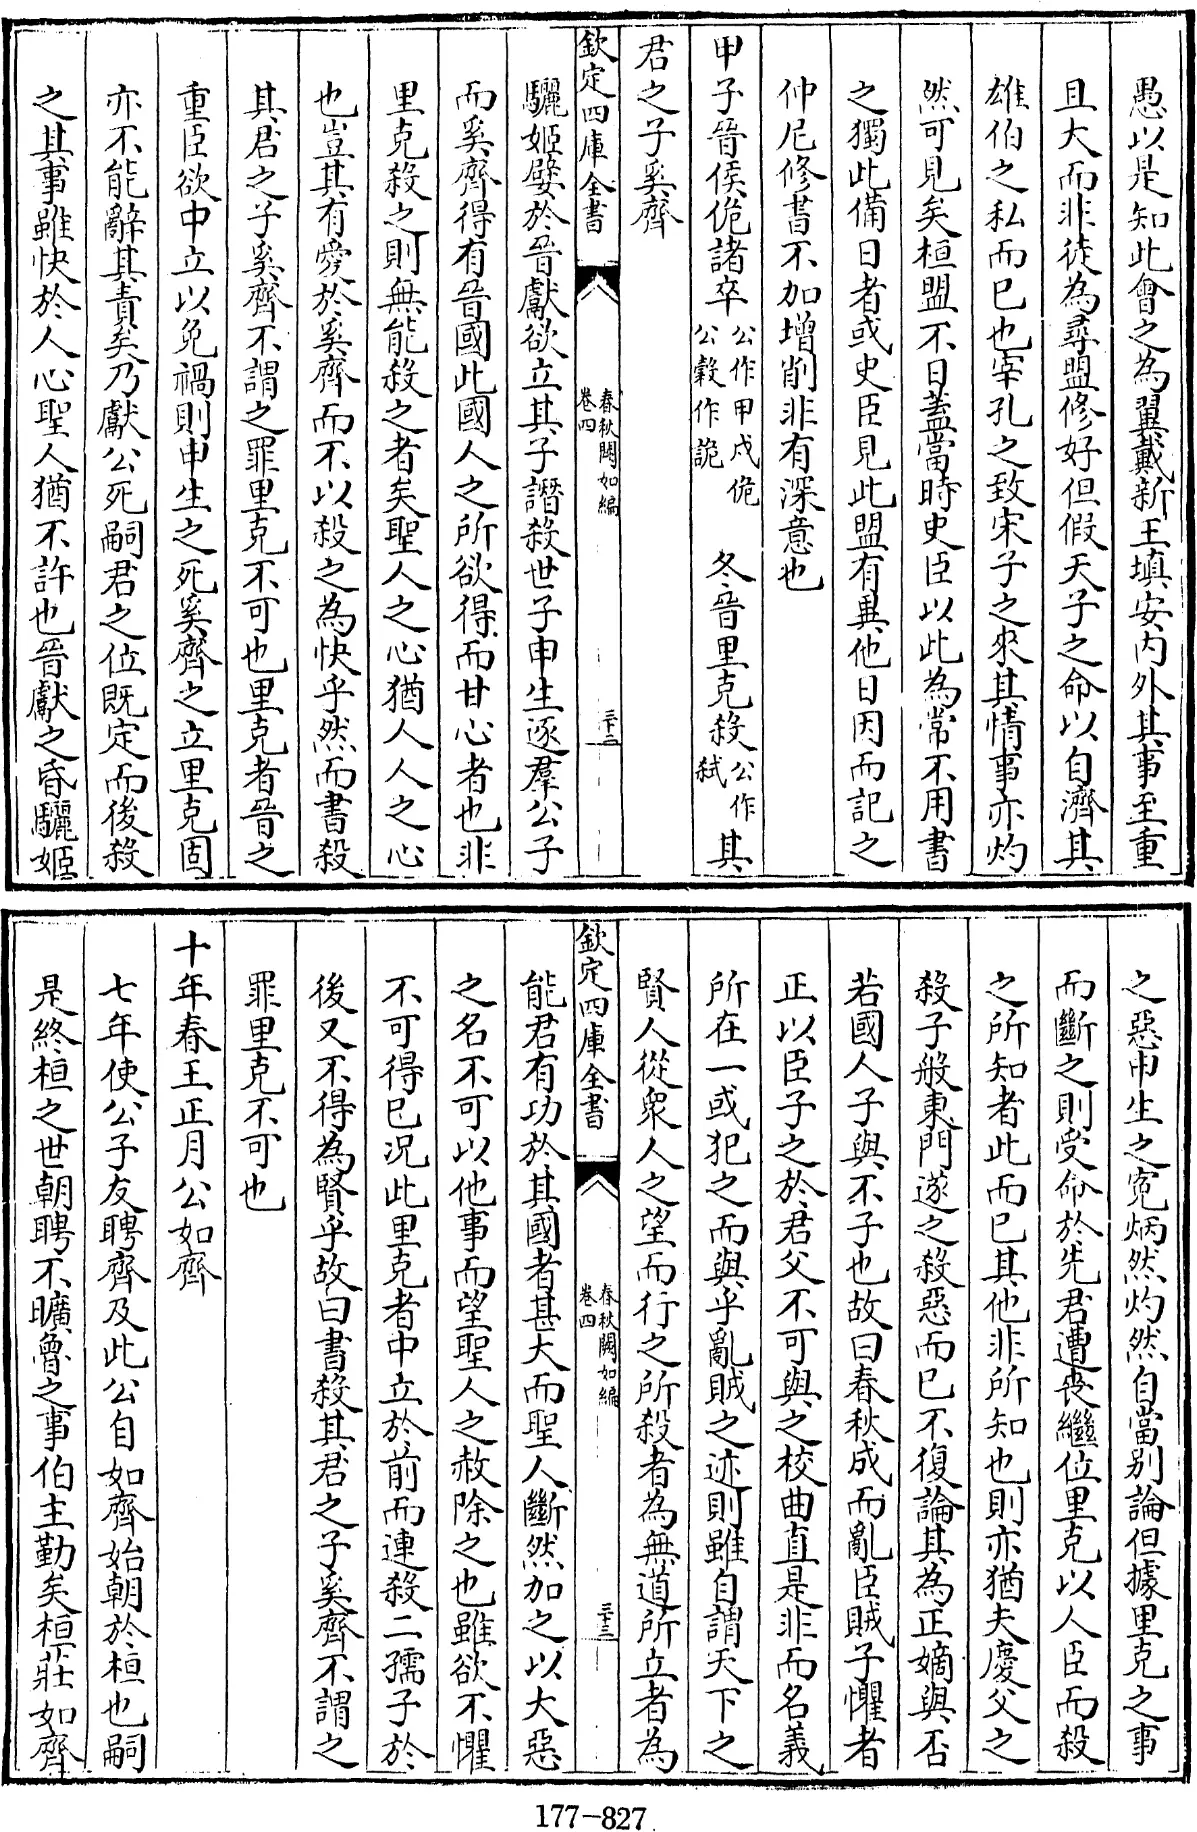 愚以是知此會之為翼戴新王填安内外其事至重
且大而非徒為尋盟修好但假天子之命以自濟其
雄伯之私而已也宰孔之致宋子之來其情事亦灼
然可見矣桓盟不日蓋當時史臣以此為常不用書
之獨此備日者或史臣見此盟有異他日因而記之
仲尼修書不加增削非有深意也
甲子晉侯佹諸卒公作甲戌佹公穀作詭　冬晉里克殺公作弑其
君之子奚齊
欽定四庫全書　春秋闕如編卷四　三十二
驪姬嬖於晉獻欲立其子譖殺世子申生逐羣公子
而奚齊得有晉國此國人之所欲得而甘心者也非
里克殺之則無能殺之者矣聖人之心猶人人之心
也豈其有愛於奚齊而不以殺之為快乎然而書殺
其君之子奚齊不謂之罪里克不可也里克者晉之
重臣欲中立以免禍則申生之死奚齊之立里克固
亦不能辭其責矣乃獻公死嗣君之位既定而後殺
之其事雖快於人心聖人猶不許也晉獻之昏驪姬
之惡申生之寃炳然灼然自當别論但據里克之事
而斷之則受命於先君遭喪繼位里克以人臣而殺
之所知者此而已其他非所知也則亦猶夫慶父之
殺子般東門遂之殺惡而已不復論其為正嫡與否
若國人子與不子也故曰春秋成而亂臣賊子懼者
正以臣子之於君父不可與之校曲直是非而名義
所在一或犯之而與乎亂賊之迹則雖自謂天下之
賢人從衆人之望而行之所殺者為無道所立者為
欽定四庫全書　春秋闕如編卷四　三十三
能君有功於其國者甚大而聖人斷然加之以大惡
之名不可以他事而望聖人之赦除之也雖欲不懼
不可得已况此里克者中立於前而連殺二孺子於
後又不得為賢乎故曰書殺其君之子奚齊不謂之
罪里克不可也
十年春王正月公如齊
七年使公子友聘齊及此公自如齊始朝於桓也嗣
是終桓之世朝聘不曠魯之事伯主勤矣桓莊如齊
177-827